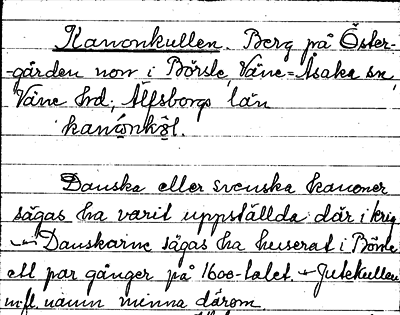 Kanonkullen. Berg på Öster-
-gården norr i Börsle, Väne-Åsaka sn,
Väne hd, Älfsborgs län
kanónkòl.
Danska eller svenska kanoner
sägas ha varit uppställda där i krig
Danskarne sägas ha huserat i Börsle
ett par gånger på 1600-talet. Jutekullen
m.fl. namn minna därom.